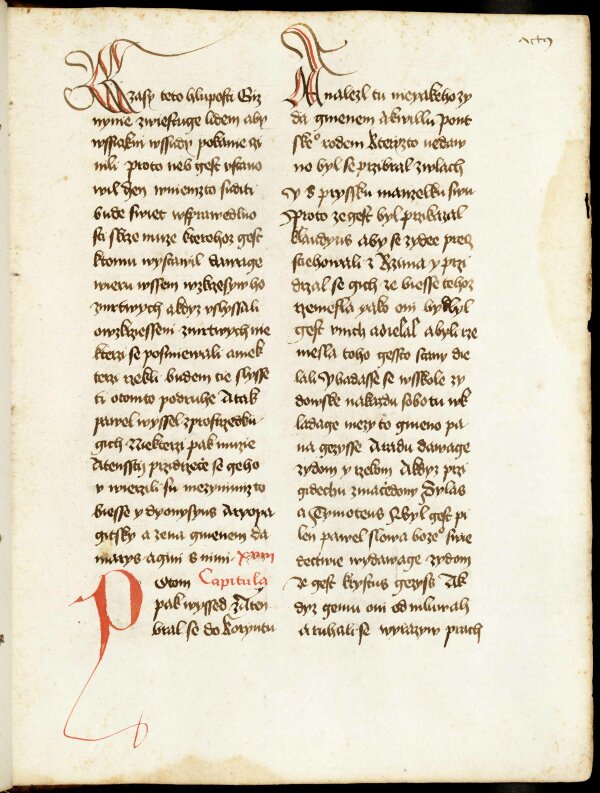 Actꝰ
Czasy teto hluposti Giz
nynie zwiestuge lidem aby
wssickni wssudy pokanie czi
nili proto neb gest vstano
wil den wniemzto suditi
bude swiet wsprawedlno
sti skrze muze kterehoz gest
ktomu wystawil dawage
wieru wssem wzkrzysyw ho
zmrtwych akdyz vslyssali
owzkrziesseni zmrtwych nie
kterzi se posmiewali aniek
terzi rzekli budem tie slysse
ti otomto podruhe Atak
pawel wyssel zprostrzedku
gich Niekterzi pak muzie
Atenssty przidrzece se geho
v wierzili su mezynimizto
biesse y dyonysyus Aryopa
gitsky a zena gmenem da
marys agini s nimi xviii
Potom Capitula
pak wyssed zAten
bral se do Koryntu
A nalezl tu nieyakeho zy
da gmenem akwillu pont
skeº rodem kteryzto nedaw
no byl se przibral zwlach
y s pryssku manzelku swu
proto ze gest byl przikazal
klaudyus aby se zydee precz
stiehowali z Rzima y przi
drzal se gich ze biesse tehoz
rzemesla yako oni bykbyl
gest vnich adielal abyli rze
mesla toho gessto stany die
lali Yhadasse se wsskole zy
dowske nakazdu sobotu wk
ladage mezy to gmeno pa
na gezysse Aradu dawage
zydom y rzekom Akdyz przi
gidechu zmacedony Sylas
a Tymoteus Ybyl gest pi
len pawel slowa bozeº swie
dectwie wydawage zydom
ze gest krystus gezyss Ak
dyz gemu oni odmluwali
a ruhali se wyrazyw prach